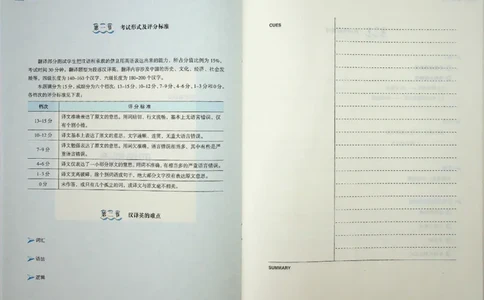 第二章 考试形式及评分标准
翻译部分测试学生把汉语所承载的信息用英语表达出来的能力。所占分值比例为 15%,
考试时间 30 分钟。翻译题型为段落汉译英。翻译内容涉及中国的历史、文化、经济、社会发
展等。四级长度为 140-160 个汉字,六级长度为 180-200 个汉字。
本题满分为 15 分,成绩分为六个档次:13-15 分、10-12 分、7-9 分、4-6 分、1-3 分和 0 分。
各档次的评分标准见下表:
档次 评分标准
13-15 分 译文准确表达了原文的意思。用词贴切,行文流畅,基本上无语言错误,仅
有个别小错。
10-12 分 译文基本上表达了原文的意思。文字通顺、连贯,无重大语言错误。
7-9 分 译文勉强表达了原文的意思。用词欠准确,语言错误相当多,其中有些是严
重语言错误。
4-6 分 译文仅表达了一小部分原文的意思。用词不准确,有相当多的严重语言错误。
1-3 分 译文支离破碎。除个别词语或句子,绝大部分文字没有表达原文意思。
0 分 未作答,或只有几个孤立的词,或译文与原文毫不相关。
第三章 汉译英的难点
词汇
语法
逻辑
CUES
SUMMARY